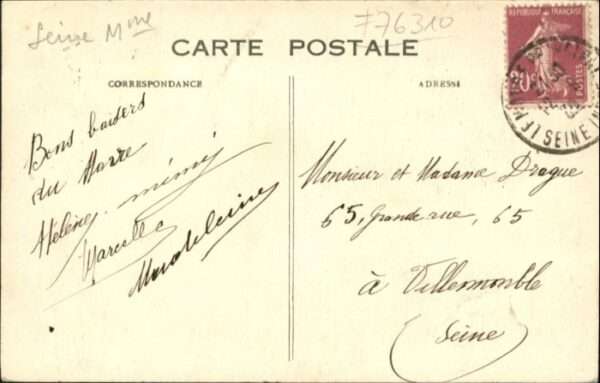 Seine Mme
#76310
CARTE POSTALE
CORRESPONDANCE
ADRESSE
REPUBLIQUE FRANÇAISE
20c
POSTES
SEINE IN
Bons baisers
du Havre
Hélène mimi
Marcelle
Madeleine
Monsieur et Madame Drague
65, Grande rue, 65
à Villemomble
(Seine)